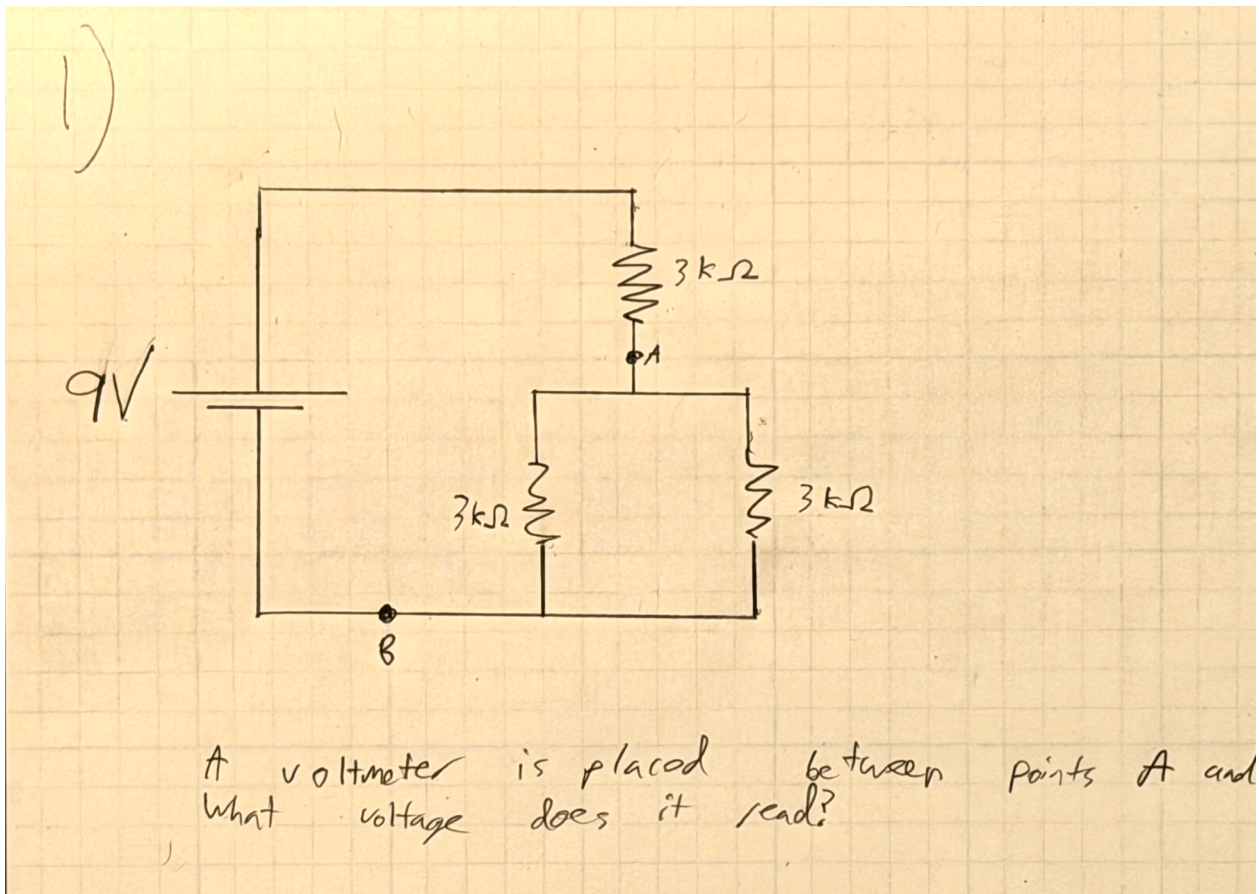 1)
3kΩ
A
9V
3kΩ
3kΩ
B
A voltmeter is placed between points A and
What voltage does it read?